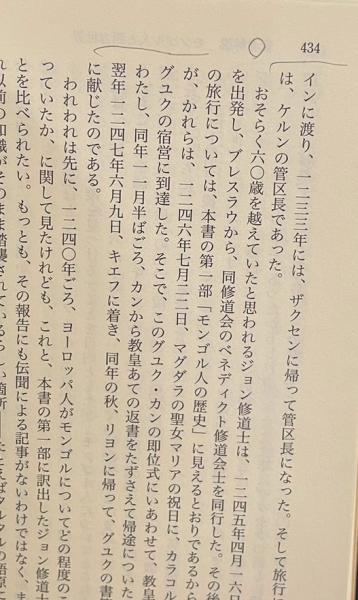 434
インに渡り、一二三三年には、ザクセンに帰って管区長になった。そして旅行
は、ケルンの管区長であった。
おそらく六〇歳を越えていたと思われるジョン修道士は、一二四五年四月一六日
を出発し、ブレスラウから、同修道会のベネディクト修道会士を同行した。その後
の旅行については、本書の第一部「モンゴル人の歴史」に見えるとおりであるから
が、かれらは、一二四六年七月二二日、マグダラの聖女マリアの祝日に、カラコル
グユクの宿営に到達した。そこで、このグユク・カンの即位式にいあわせて、教皇
わたし、同年一一月半ばごろ、カンから教皇あての返書をたずさえて帰途についた
翌年一二四七年六月九日、キエフに着き、同年の秋、リヨンに帰って、グユクの書
に献じたのである。
われわれは先に、一二四〇年ごろ、ヨーロッパ人がモンゴルについてどの程度のこ
っていたか、に関して見たけれども、これと、本書の第一部に訳出したジョン修道士
とを比べられたい。もっとも、その報告にも伝聞による記事がないわけではなく、ま
れ以前の知識がそのまま踏襲されているらしい箇所――たとえばタルタルの語原に